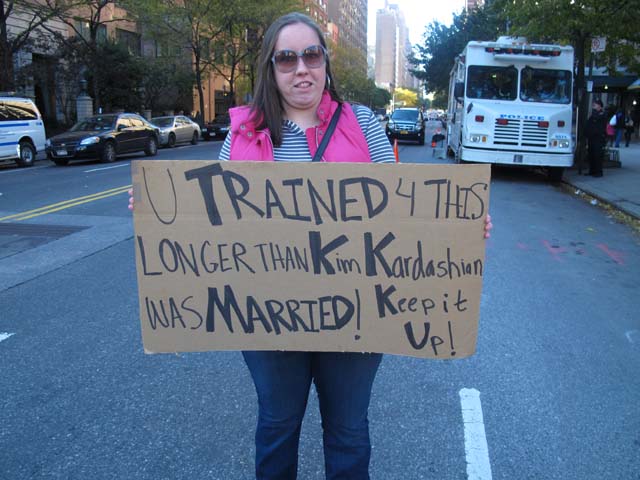 U TRAINED 4 THIS
LONGER THAN Kim Kardashian
WAS MARRIED! Keep it
Up!
POLICE